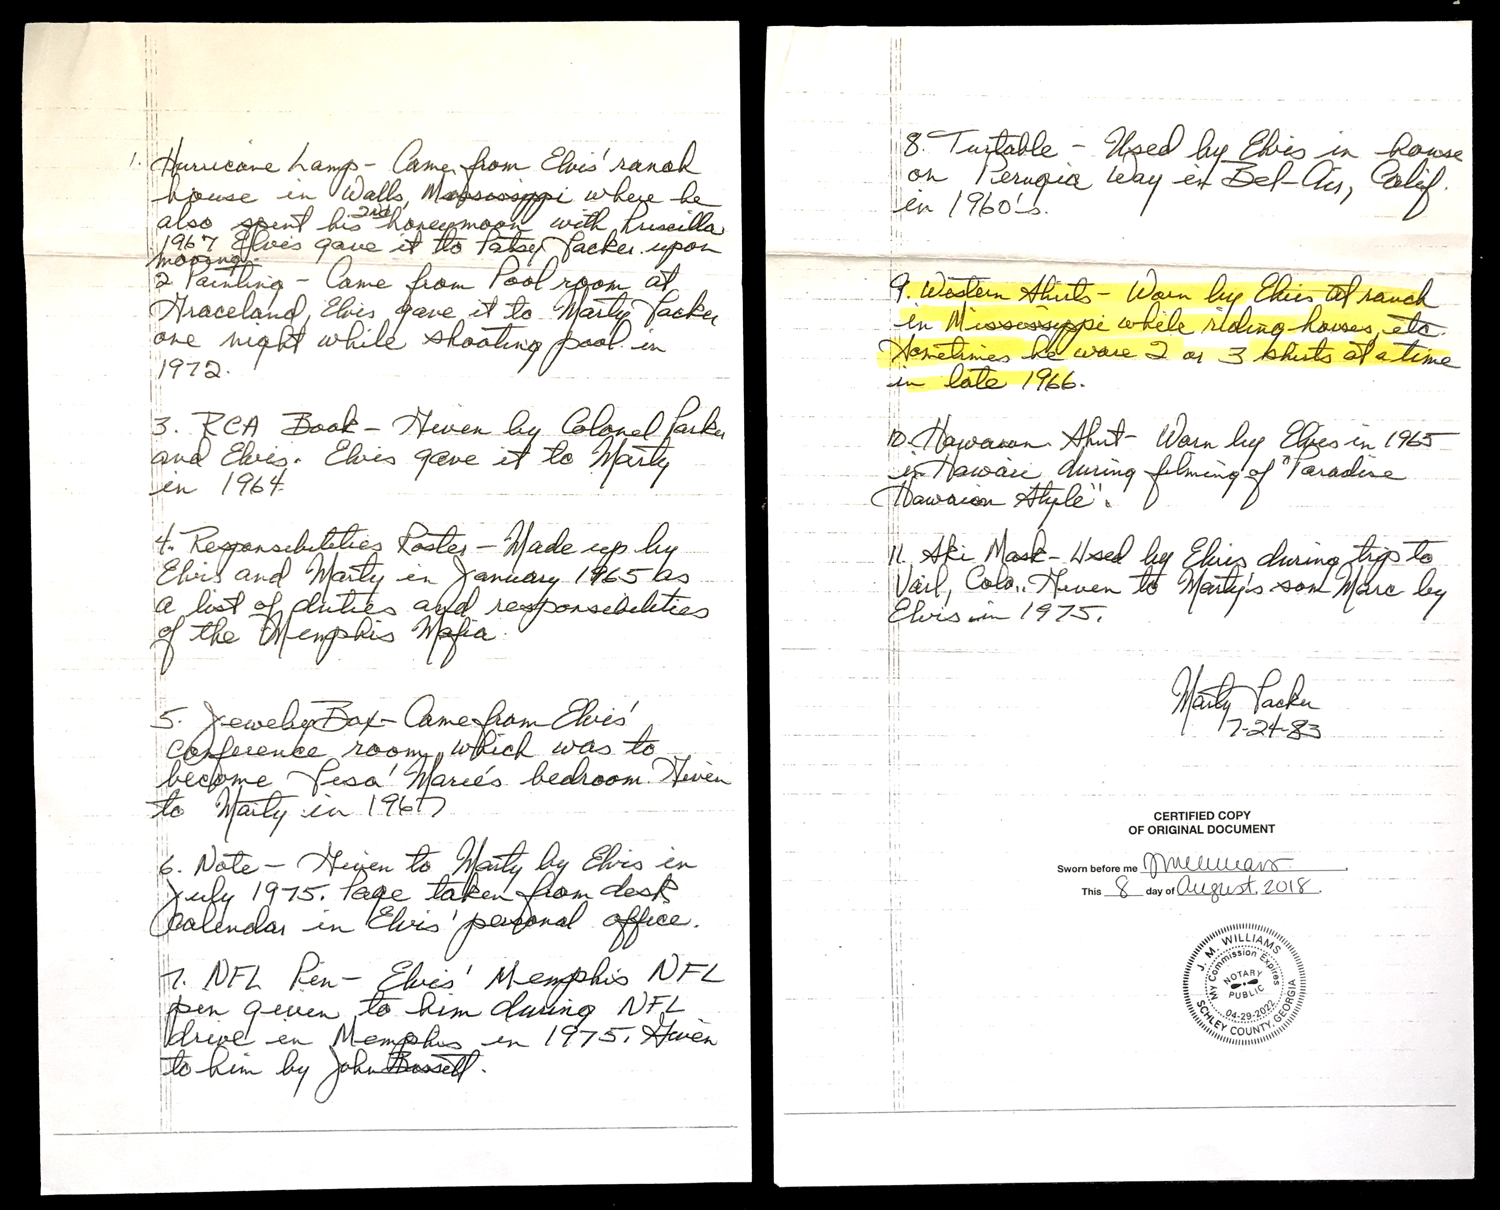 1. Hurricane Lamp - Came from Elvis' ranch
house in Walls, Mississippi where he
also spent his 2nd honeymoon with Priscilla
1967 Elvis gave it to Patsy Lacker upon
moving.
2 Painting - Came from Pool room at
Graceland, Elvis gave it to Marty Lacker
one night while shooting pool in
1972.
3. RCA Book - Given by Colonel Parker
and Elvis. Elvis gave it to Marty
in 1964
4. Responsibilities Roster - Made up by
Elvis and Marty in January 1965 as
a list of duties and responsibilities
of the Memphis Mafia.
5. Jewelry Box - Came from Elvis'
conference room which was to
become Lisa Marie's bedroom. Given
to Marty in 1967
6. Note - Given to Marty by Elvis in
July 1975. Page taken from desk
calendar in Elvis' personal office.
7. NFL Pin - Elvis' Memphis NFL
pin given to him during NFL
drive in Memphis in 1975. Given
to him by John Bassett.
8. Turtable - Used by Elvis in house
on Perugia Way in Bel-Air, Calif.
in 1960's.
9. Western Shirts - Worn by Elvis at ranch
in Mississippi while riding horses, etc.
Sometimes he wore 2 or 3 shirts at a time
in late 1966.
10. Hawaiian Shirt - Worn by Elvis in 1965
in Hawaii during filming of "Paradise
Hawaiian Style".
11. Ski Mask - Used by Elvis during trip to
Vail, Colo. Given to Marty's son Marc by
Elvis in 1975.
Marty Lacker
7-24-83
CERTIFIED COPY
OF ORIGINAL DOCUMENT
Sworn before me
This 8 day of August, 2018.
J. M. WILLIAMS
My Commission Expires
NOTARY
PUBLIC
04-29-2022
SCHLEY COUNTY, GEORGIA